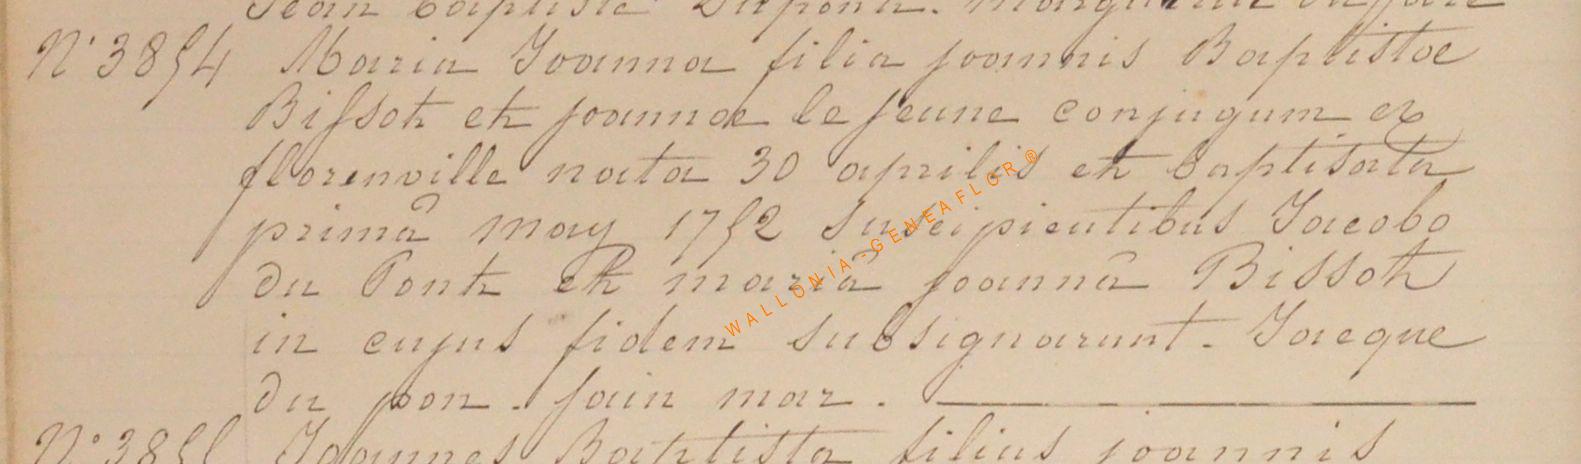 Jean Baptiste Dupont. Marguerite
N° 3854 Maria Joanna filia joannis Baptistae
Bissot et joannae le jeune conjugum ex
florenville nata 30 aprilis et baptisata
primâ may 1752 suscipientibus Jacobo
du Pont et mariâ joannâ Bissot
in cujus fidem subsignarunt. Jacque
du pon. jain mar.
N° 3855 Joannes Baptista filius joannis
WALLONIA-GENEAFLOR®